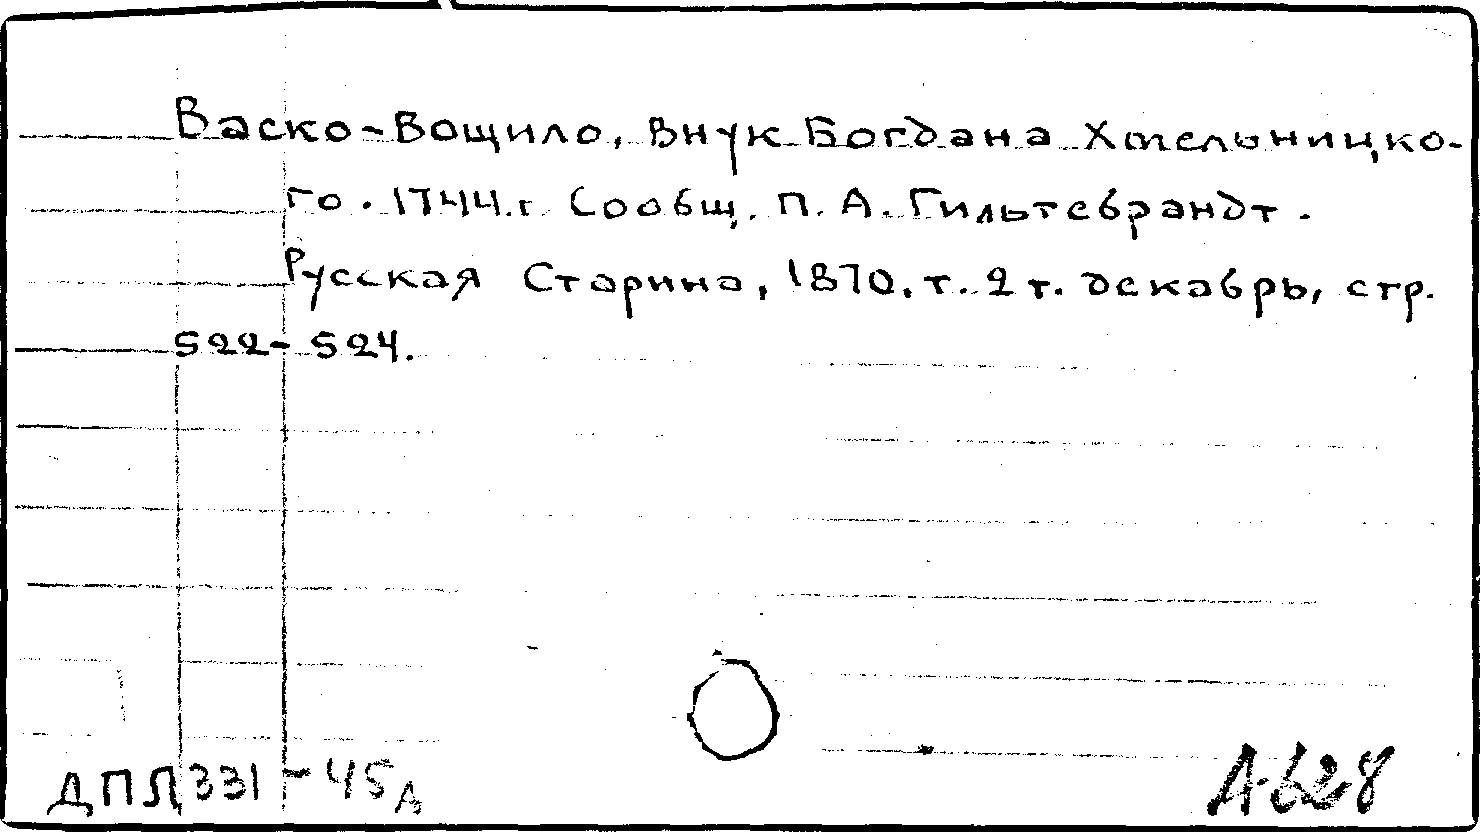 Васко-Вощило, внук Богдана Хмельницко-
го. 1744.г. Сообщ. П. А. Гильтебрандт.
Русская Старина, 1870, т. 2 т. декабрь, стр.
522-524.
ДПЛ 331-45д
А-628